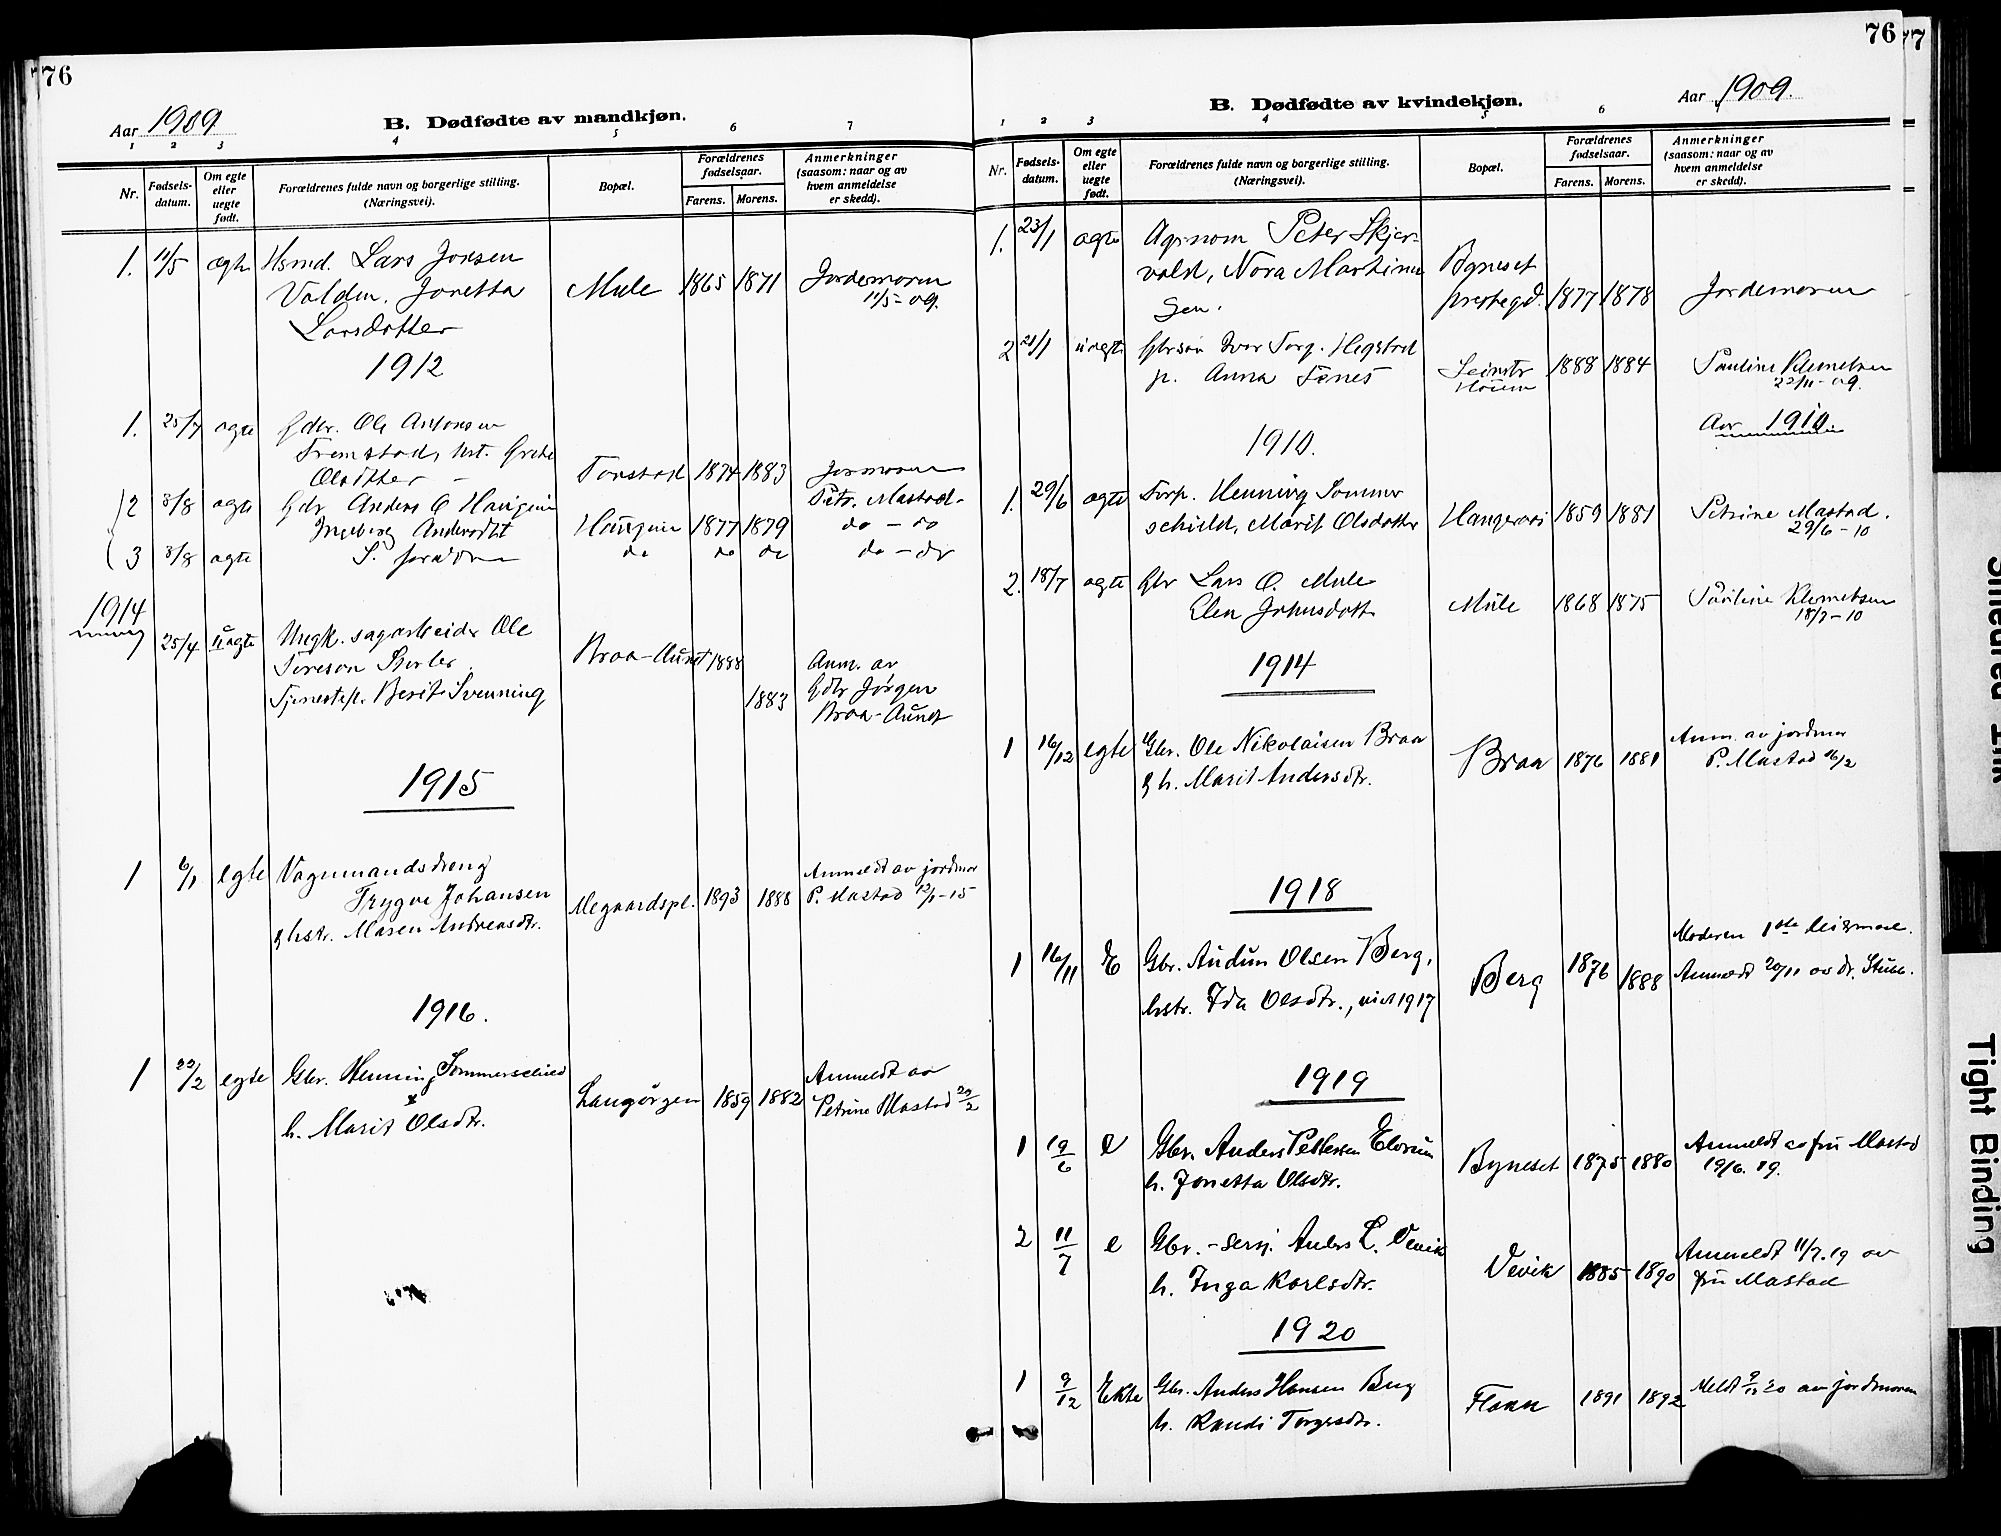 76
Aar 1909
B. Dødfødte av mandkjøn.
1 2 3 4 5 6 7
Nr. Fødsels-datum. Om egte eller uegte født. Forældrenes fulde navn og borgerlige stilling. (Næringsvei). Bopæl. Forældrenes fødselsaar. Farens. Morens. Anmerkninger (saasom: naar og av hvem anmeldelse er skedd).
1. 11/5 ægte Hsmd. Lars Jonsen
Valden. Jonetta Mule 1865 1871 Jordemoren 11/5-09.
Larsdatter
1912
1. 25/7 ægte Gbr. Ole Antonsen
Tremstad, hst. Grete
Olsdtter Torstad 1874 1883 Jormoren
2 3/8 ægte Gdr Anders O Haugum Petr. Mastad
Ingeborg Andersdt Haugum 1877 1879 do - do
3 3/8 ægte S. foreldre do do do do - do
1914
25/4 uægte Ungk. sagarbeider Ole Braa-Aunet 1888
Toreson Anm. av
Tjenestep. Berit Svenning 1883 Gdr Jørgen
Braa-Aunet
1915
1 6/1 egte Vognmandsdreng
Trygve Johansen Megaardspl. 1893 1888 Anmeldt av jordmor P. Mastad 12/1-15
& hstr. Maren Andreasdtr.
1916.
1 22/2 egte Gbr. Henning Sommerschild Langørgen 1859 1882 Anmeldt av
h. Marit Olsdtr. Petrine Mastad 29/2
76
77
Aar 1909.
B. Dødfødte av kvindekjøn.
1 2 3 4 5 6
Nr. Fødsels-datum. Om egte eller uegte født. Forældrenes fulde navn og borgerlige stilling. (Næringsvei). Bopæl. Forældrenes fødselsaar. Farens. Morens. Anmerkninger (saasom: naar og av hvem anmeldelse er skedd).
1. 23/1 ægte Agronom Peter Skjer-
vold, Nora Martine Byneset
sen. prestegd. 1877 1878 Jordemoren
2 21/1 uægte Gbrsøn Ivar Torg. Hegstad
p. Anna Tønes 1888 1884 Pauline Klemetsen
22/11-09.
Aar 1910
1910.
1. 29/6 ægte Forp. Henning Sommer
schild, Marit Olsdatter 1859 1881 Petrine Mastad.
29/6-10
2. 18/7 ægte Gbr Lars O. Mule
Elen Johnsdatt Mule 1868 1875 Pauline Klemetsen
18/7-10
1914
1 16/12 egte Gbr. Ole Nikolaisen Braa Braa 1876 1881 Anm. av jordmor
& h. Marit Andersdtr. P. Mastad 16/12
1918
Moderen 1ste leiermaal.
1 16/11 E Gbr. Audun Olsen Berg, Berg 1876 1888 Anmeldt 20/11 av dr. Stub.
hstr. Ida Olsdtr., viet 1917
1919
1 19/6 e Gbr. Anders Pettersen Elvrum Byneset 1875 1880 Anmeldt av fru Mastad
h. Jonetta Olsdtr. 19/6.19.
2 11/7 e Gbr.-serj. Anders L. Vevik Vevik 1885 1890 Anmeldt 11/7.19 av
h. Inga Karlsdtr. fru Mastad
1920
1 9/12 Ekte Gbr. Anders Hansen Berg Flaan 1891 1892 Meldt 9/12 20 av jordmoren
h. Randi Torgersdtr.
Shielded Ink
Tight Binding